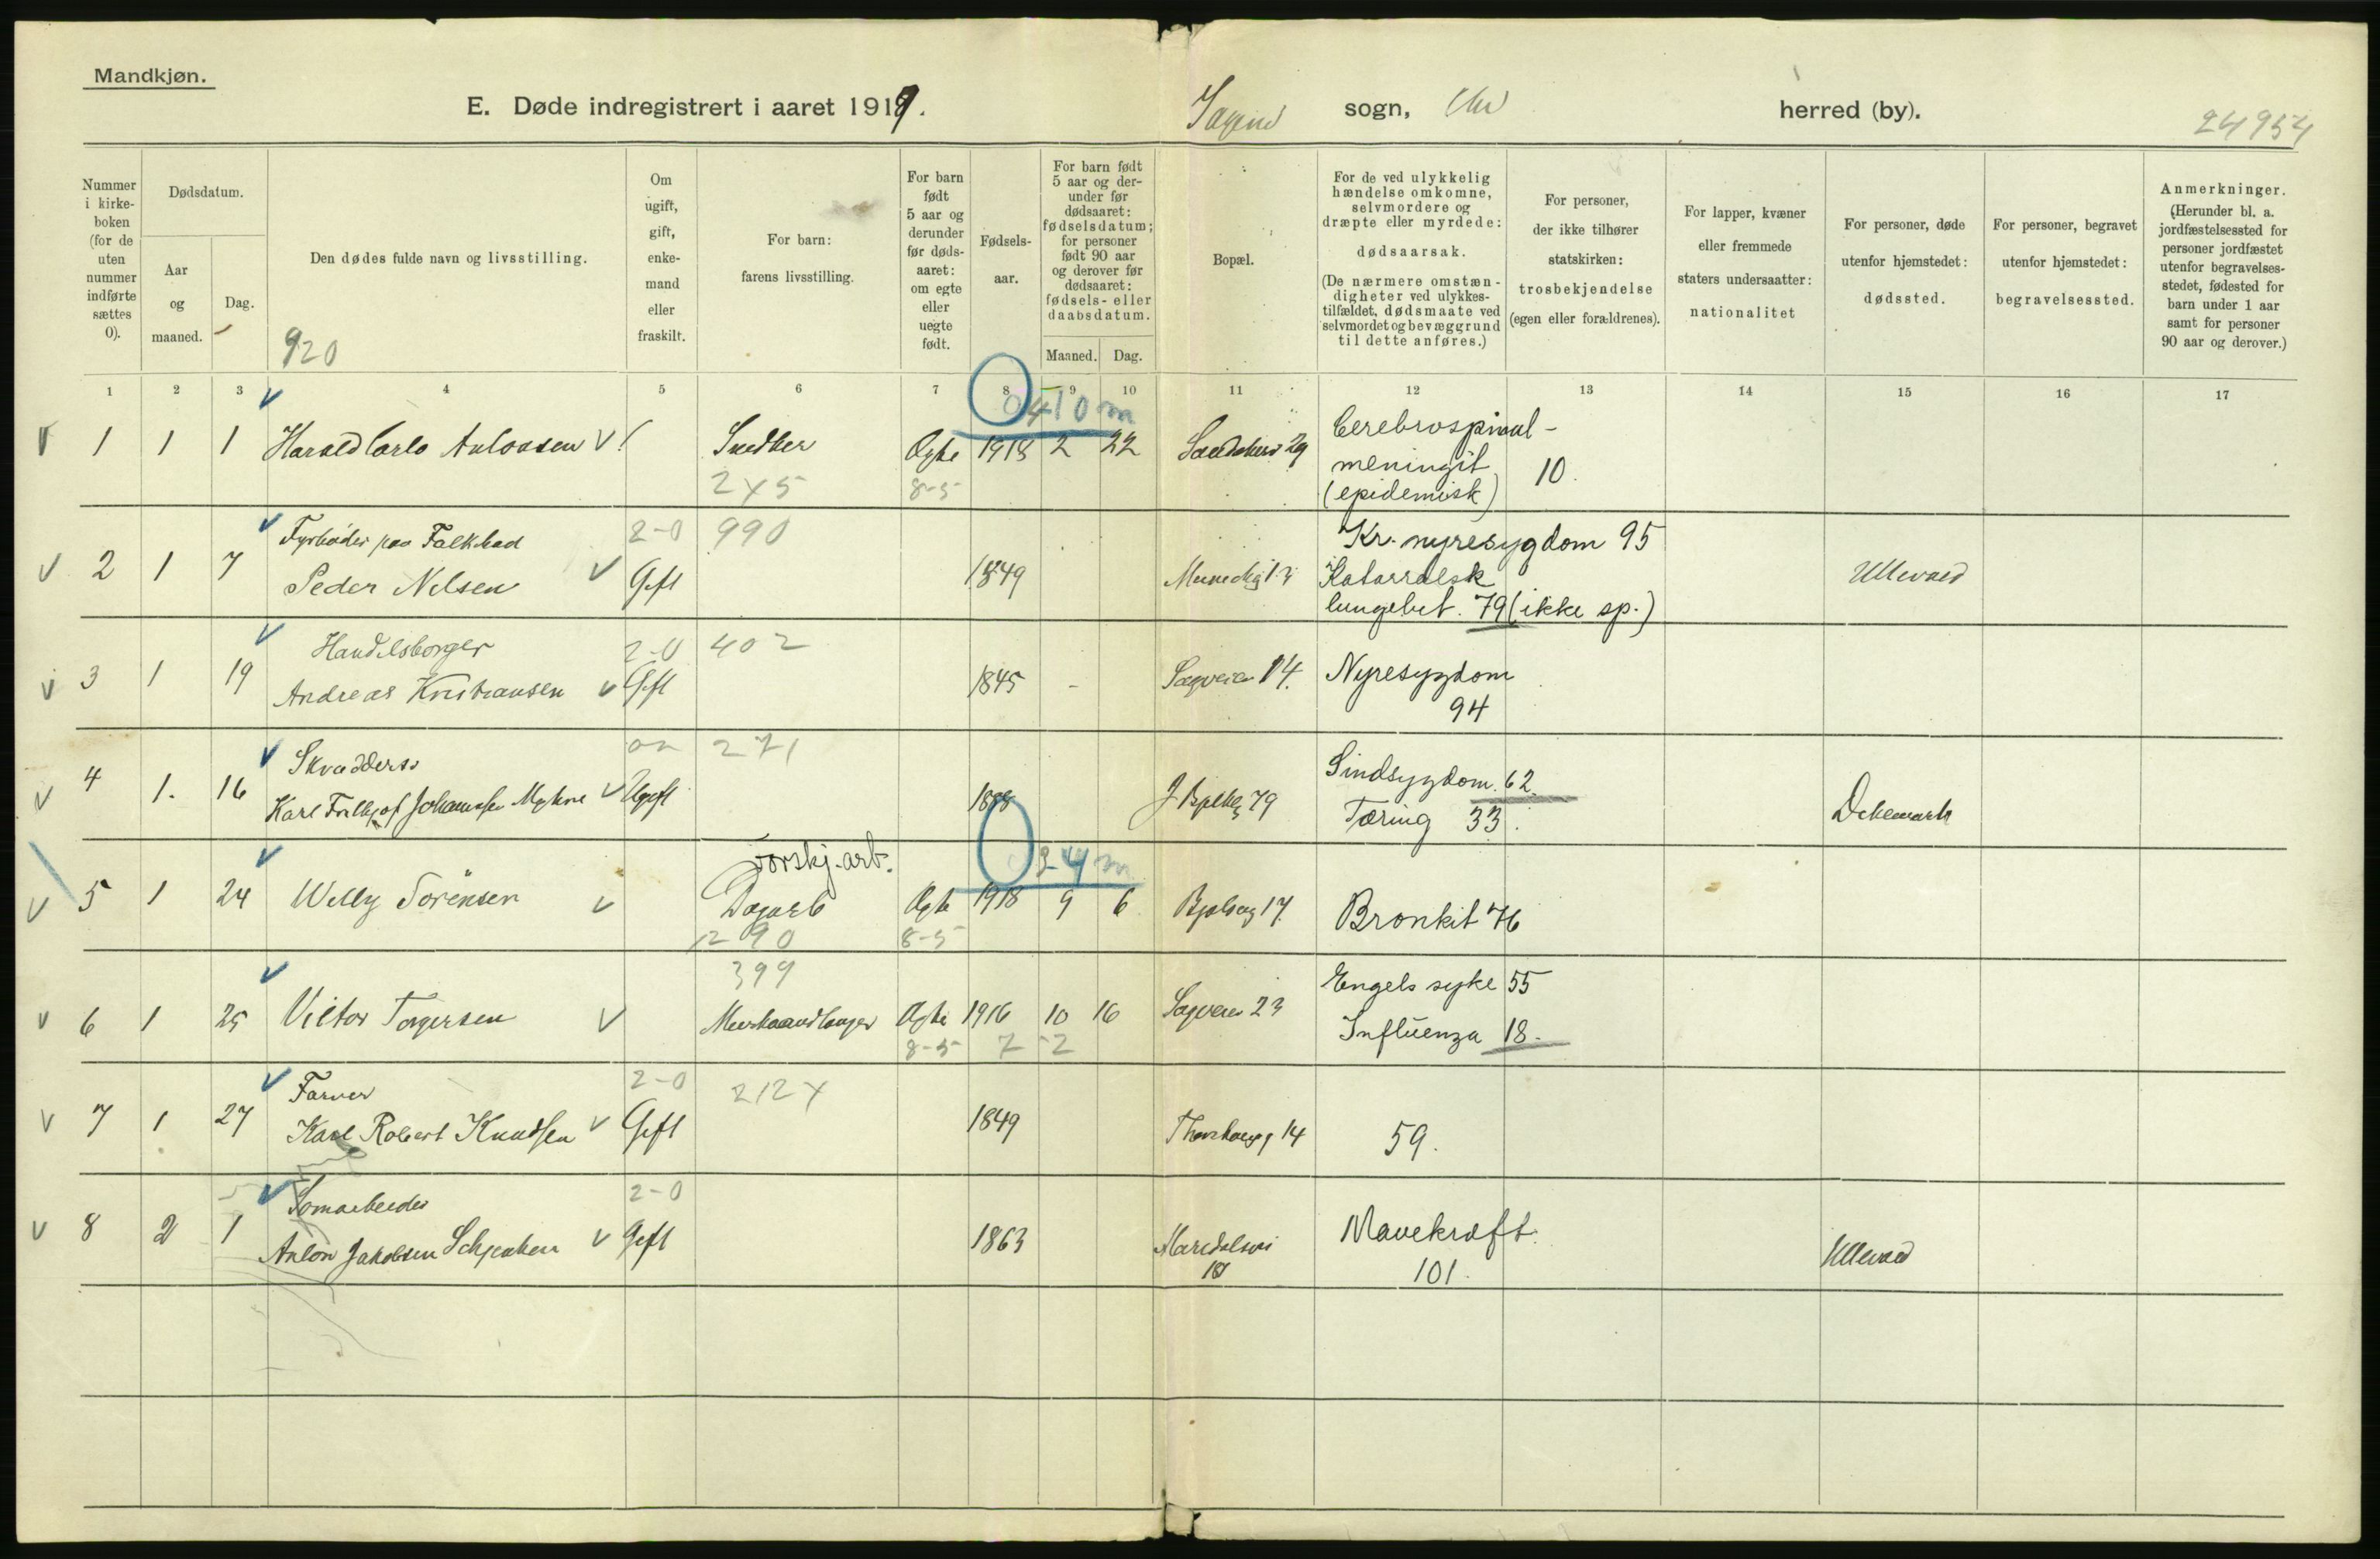 Mandkjøn.
E. Døde indregistrert i aaret 1919.
sogn,
herred (by).
24954
Nummer i kirke-boken (for de uten nummer indførte sættes 0).
Dødsdatum.
Aar og maaned.
Dag.
Den dødes fulde navn og livsstilling.
920
Om ugift, gift, enke-mand eller fraskilt.
For barn: farens livsstilling.
For barn født 5 aar og derunder før døds-aaret: om egte eller uegte født.
Fødsels-aar.
For barn født 5 aar og der-under før dødsaaret: fødselsdatum; for personer født 90 aar og derover før dødsaaret: fødsels- eller daabsdatum.
Maaned.
Dag.
Bopæl.
For de ved ulykkelig hændelse omkomne, selvmordere og dræpte eller myrdede: dødsaarsak. (De nærmere omstæn-digheter ved ulykkes-tilfældet, dødsmaate ved selvmordet og bevæggrund til dette anføres.)
For personer, der ikke tilhører statskirken: trosbekjendelse (egen eller forældrenes).
For lapper, kvæner eller fremmede staters undersaatter: nationalitet
For personer, døde utenfor hjemstedet: dødssted.
For personer, begravet utenfor hjemstedet: begravelsessted.
Anmerkninger. (Herunder bl. a. jordfæstelsessted for personer jordfæstet utenfor begravelses-stedet, fødested for barn under 1 aar samt for personer 90 aar og derover.)
1 2 3 4 5 6 7 8 9 10 11 12 13 14 15 16 17
0 10 m
1 1 1 Harald Carlo Antonsen Snedker Egte 1918 2 22 29 Cerebrospinal-
meningit 10.
(epidemisk)
2x5 8-5
Fyrbøder paa Falkstad 2-0 990 Kr. nyresygdom 95
2 1 7 Peder Nilsen Gift 1849 Katarralsk Ullevaal
lungebet. 79 (ikke sp.)
Handelsborger 2-0 402
3 1 19 Andreas Kristiansen Gift 1845 - Sagveien 14. Nyresygdom
94
271
Sindsygdom. 62.
4 1. 16 Karl Johansen Ugift 1888 79 Tæring 33. Dikemark
Vorskj. arb. 3-4 m
5 1 24 Willy Sörensen Dagarb Egte 1918 9 6 17 Bronkit 76
1290 8-5
399 Engelsk syke 55
6 1 25 Victor Torgersen Egte 1916 10 16 Sagveien 23 Influenza 18.
8-5 7 2
Farver 2-0 212x
7 1 27 Karl Robert Knudsen Gift 1849 14 59.
2-0
8 2 1 Anton Jakobsen Gift 1863 Maridalsvei Mavekræft. Ullevaal
101.